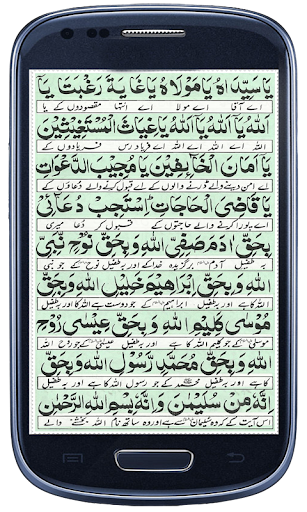 يَا سَيِّدَاهُ يَا مَوْلَاهُ يَا غَايَةَ رَغْبَتَا يَا
اے آقا اے مولا اے انتہا مقصودوں کے یا
اَللهُ يَا اَللهُ يَا اَللهُ يَا غِيَاثَ الْمُسْتَغِيْثِيْنَ
اللہ اے اللہ اے اللہ اے فریادرس فریادوں کے
يَا اَمَانَ الْخَآئِفِيْنَ يَا مُجِيْبَ الدَّعْوَاتِ
اے امن دینے والے ڈرنے والوں کے اے قبول کرنے والے دعاؤں کے
يَا قَاضِيَ الْحَاجَاتِ اِسْتَجِبْ دُعَآئِيْ
اے پورا کرنے والے حاجتوں کے قبول کر دعا میری
بِحَقِّ اٰدَمَ صَفِيِّ اللهِ وَبِحَقِّ نُوْحٍ نَّبِيِّ
بہ طفیل آدم برگزیدہ خدا کے اور بہ طفیل نوح کے جو نبی
اللهِ وَبِحَقِّ اِبْرَاهِيْمَ خَلِيْلِ اللهِ وَبِحَقِّ
اللہ کا ہے اور بہ طفیل ابراہیم کے جو دوست ہے اللہ کا اور بہ طفیل
مُوْسٰى كَلِيْمِ اللهِ وَبِحَقِّ عِيْسٰى رُوْحِ
موسیٰ کے جو کلیم اللہ کا ہے اور بہ طفیل عیسیٰ کے جو روح اللہ
اللهِ وَبِحَقِّ مُحَمَّدٍ رَّسُوْلِ اللهِ وَبِحَقِّ
کا ہے اور بہ طفیل محمد کے جو رسول اللہ کا ہے اور بہ طفیل
اِنَّهٗ مِنْ سُلَيْمٰنَ وَاِنَّهٗ بِسْمِ اللهِ الرَّحْمٰنِ
اس آیت کے کہ وہ سلیمان سے ہے اور وہ ساتھ نام اللہ بخشنے والے